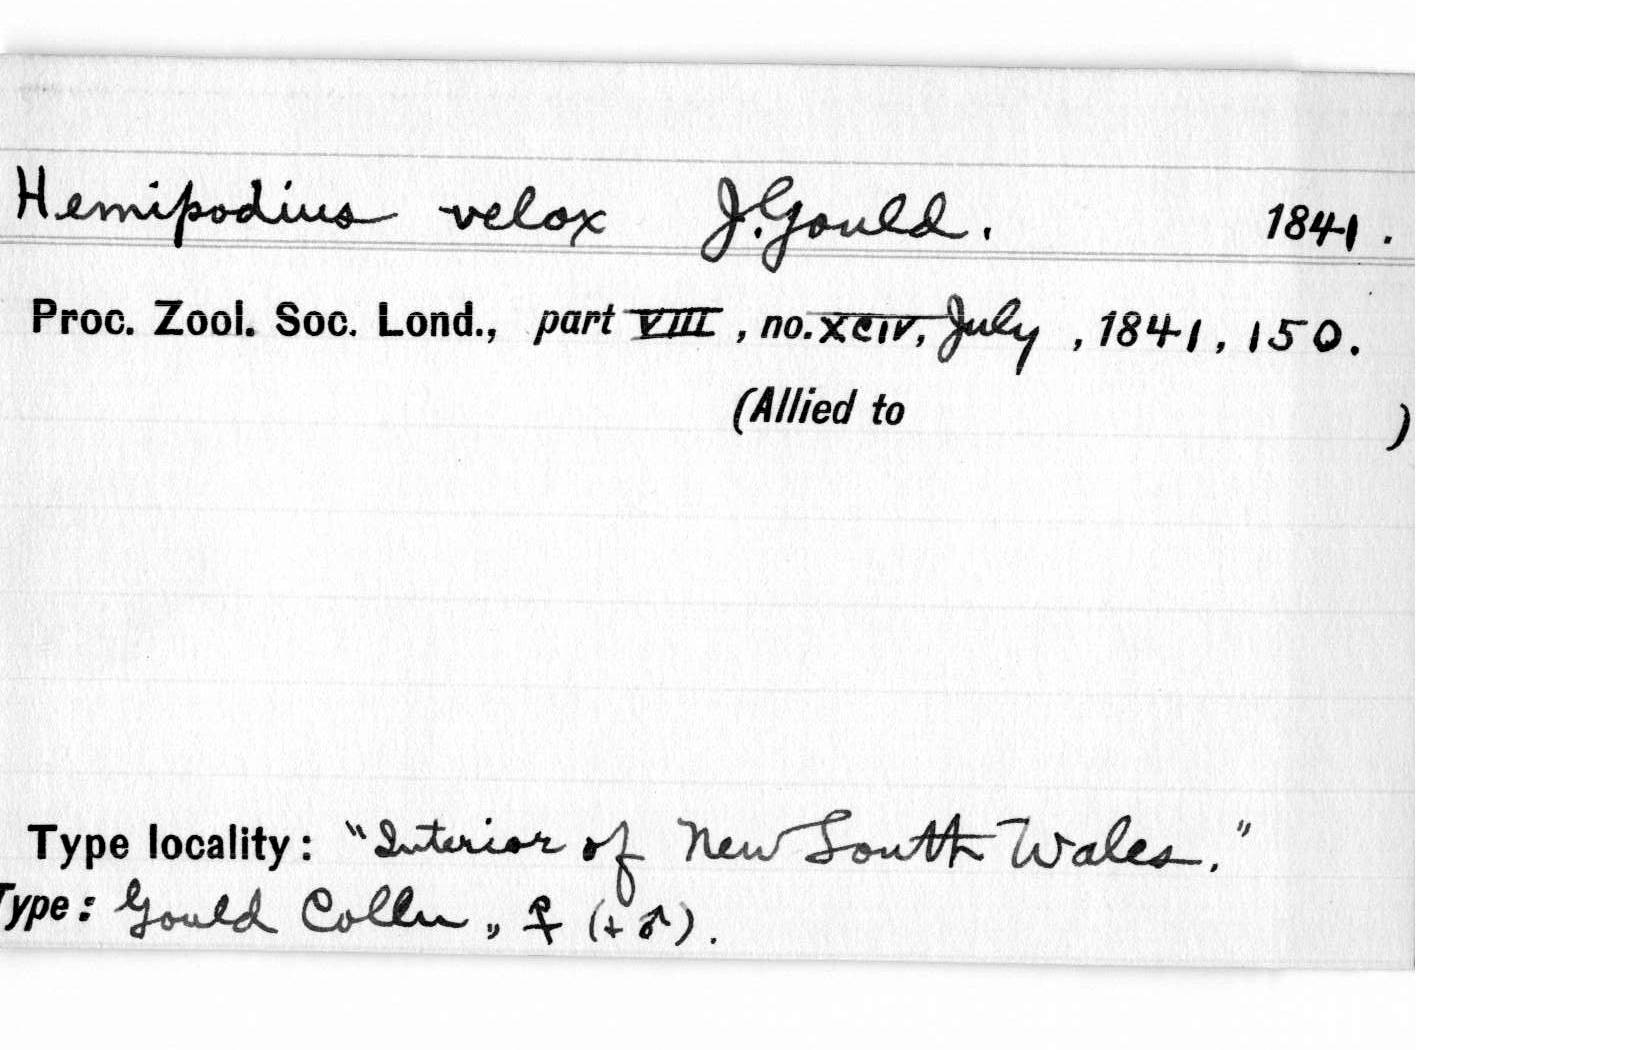 Hemipodius velox J. Gould. 1841.
Proc. Zool. Soc. Lond., part VIII, no. XCIV, July, 1841, 150.
(Allied to )
Type locality: "Interior of New South Wales."
Type: Gould Colln., ♀ (+ ♂).